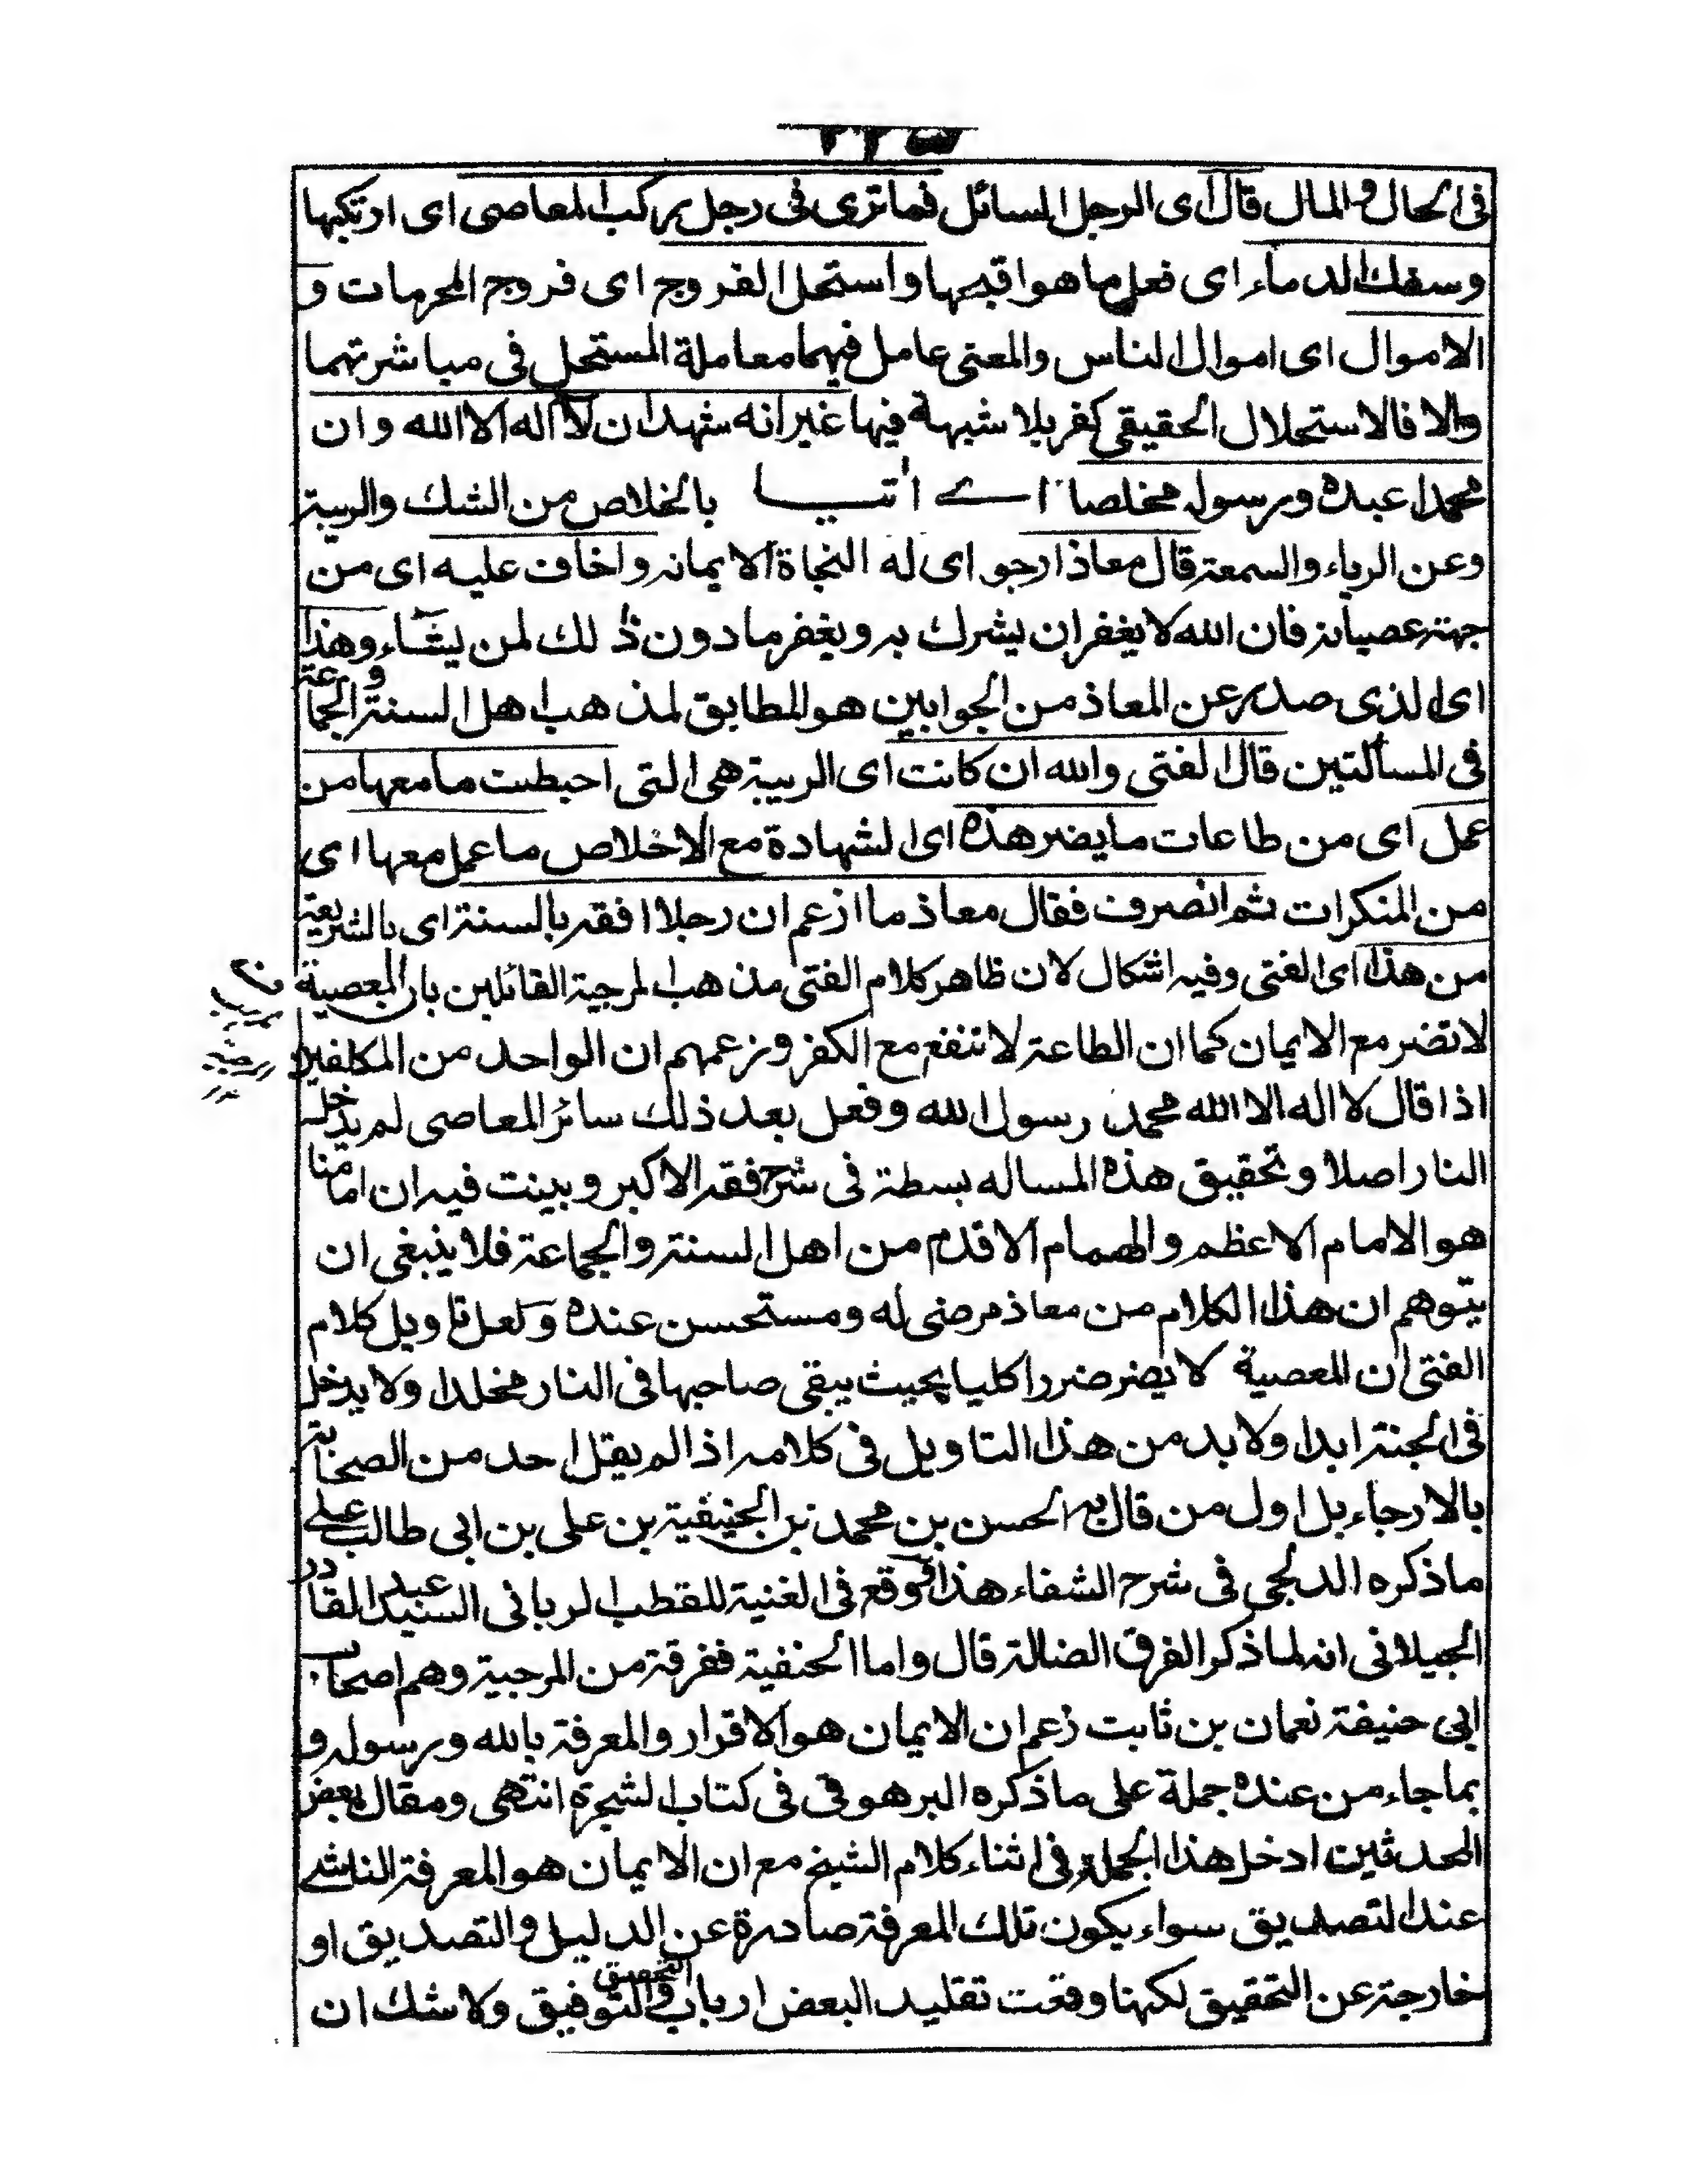 ٢٢٥
فى الحال والمال قال اى الرجل المسائل فما ترى فى رجل يركب المعاصى اى ارتكبها
وسفك الدماء اى فعل ما هو اقبحها واستحل الفروج اى فروج المحرمات و
الاموال اى اموال الناس والمعنى عامل فيهما معاملة المستحل فى مباشرتهما
والا فالاستحلال الحقيقى كفر بلا شبهة فيها غير انه شهد ان لا اله الا الله وان
محمدا عبده ورسوله مخلصا اے اتيا بالخلاص من الشك والريبة
وعن الرياء والسمعة قال معاذ ارجو اى له النجاة لايمانه واخاف عليه اى من
جهة عصيانه فان الله لا يغفر ان يشرك به ويغفر ما دون ذلك لمن يشاء وهذا
اى الذى صدر عن المعاذ من الجوابين هو المطابق لمذهب اهل السنة والجماعة
فى المسألتين قال الفتى والله ان كانت اى الريبة هى التى احبطت ما معها من
عمل اى من طاعات ما يضر هذه اى الشهادة مع الاخلاص ما عمل معها اى
من المنكرات ثم انصرف فقال معاذ ما ازعم ان رجلا افقه بالسنة اى بالشريعة
من هذا اى الفتى وفيه اشكال لان ظاهر كلام الفتى مذهب المرجية القائلين بان المعصية
لا تضر مع الايمان كما ان الطاعة لا تنفع مع الكفر وزعمهم ان الواحد من المكلفين
اذا قال لا اله الا الله محمد رسول الله وفعل بعد ذلك سائر المعاصى لم يدخل
النار اصلا وتحقيق هذه المساله بسطة فى شرح فقه الاكبر وبينت فيه ان امامنا
هو الامام الاعظم والهمام الاقدم من اهل السنة والجماعة فلا ينبغى ان
يتوهم ان هذا الكلام من معاذ مرضى له ومستحسن عنده ولعل تاويل كلام
الفتى ان المعصية لا يضر ضررا كليا بحيث يبقى صاحبها فى النار مخلدا ولا يدخل
فى الجنة ابدا ولا بد من هذا التاويل فى كلامه اذا لم يقل احد من الصحابة
بالارجاء بل اول من قال به الحسن بن محمد بن الحنيفية بن على بن ابى طالب على
ما ذكره الدلجى فى شرح الشفاء هذا فوقع فى الغنية للقطب الربانى السيد عبد القادر
الجيلانى انه لما ذكر الفرق الضالة قال واما الحنفية ففرقة من المرجية وهم اصحاب
ابى حنيفة نعمان بن ثابت زعم ان الايمان هو الاقرار والمعرفة بالله ورسوله و
بما جاء من عنده جملة على ما ذكره البرهوقى فى كتاب الشجرة انتهى ومقال بعض
المحدثين ادخل هذا الجملة فى اثناء كلام الشيخ مع ان الايمان هو المعرفة الناشے
عند التصديق سواء يكون تلك المعرفة صادرة عن الدليل والتصديق او
خارجة عن التحقيق لكنها وقعت تقليد البعض ارباب التحقيق والتوفيق ولا شك ان